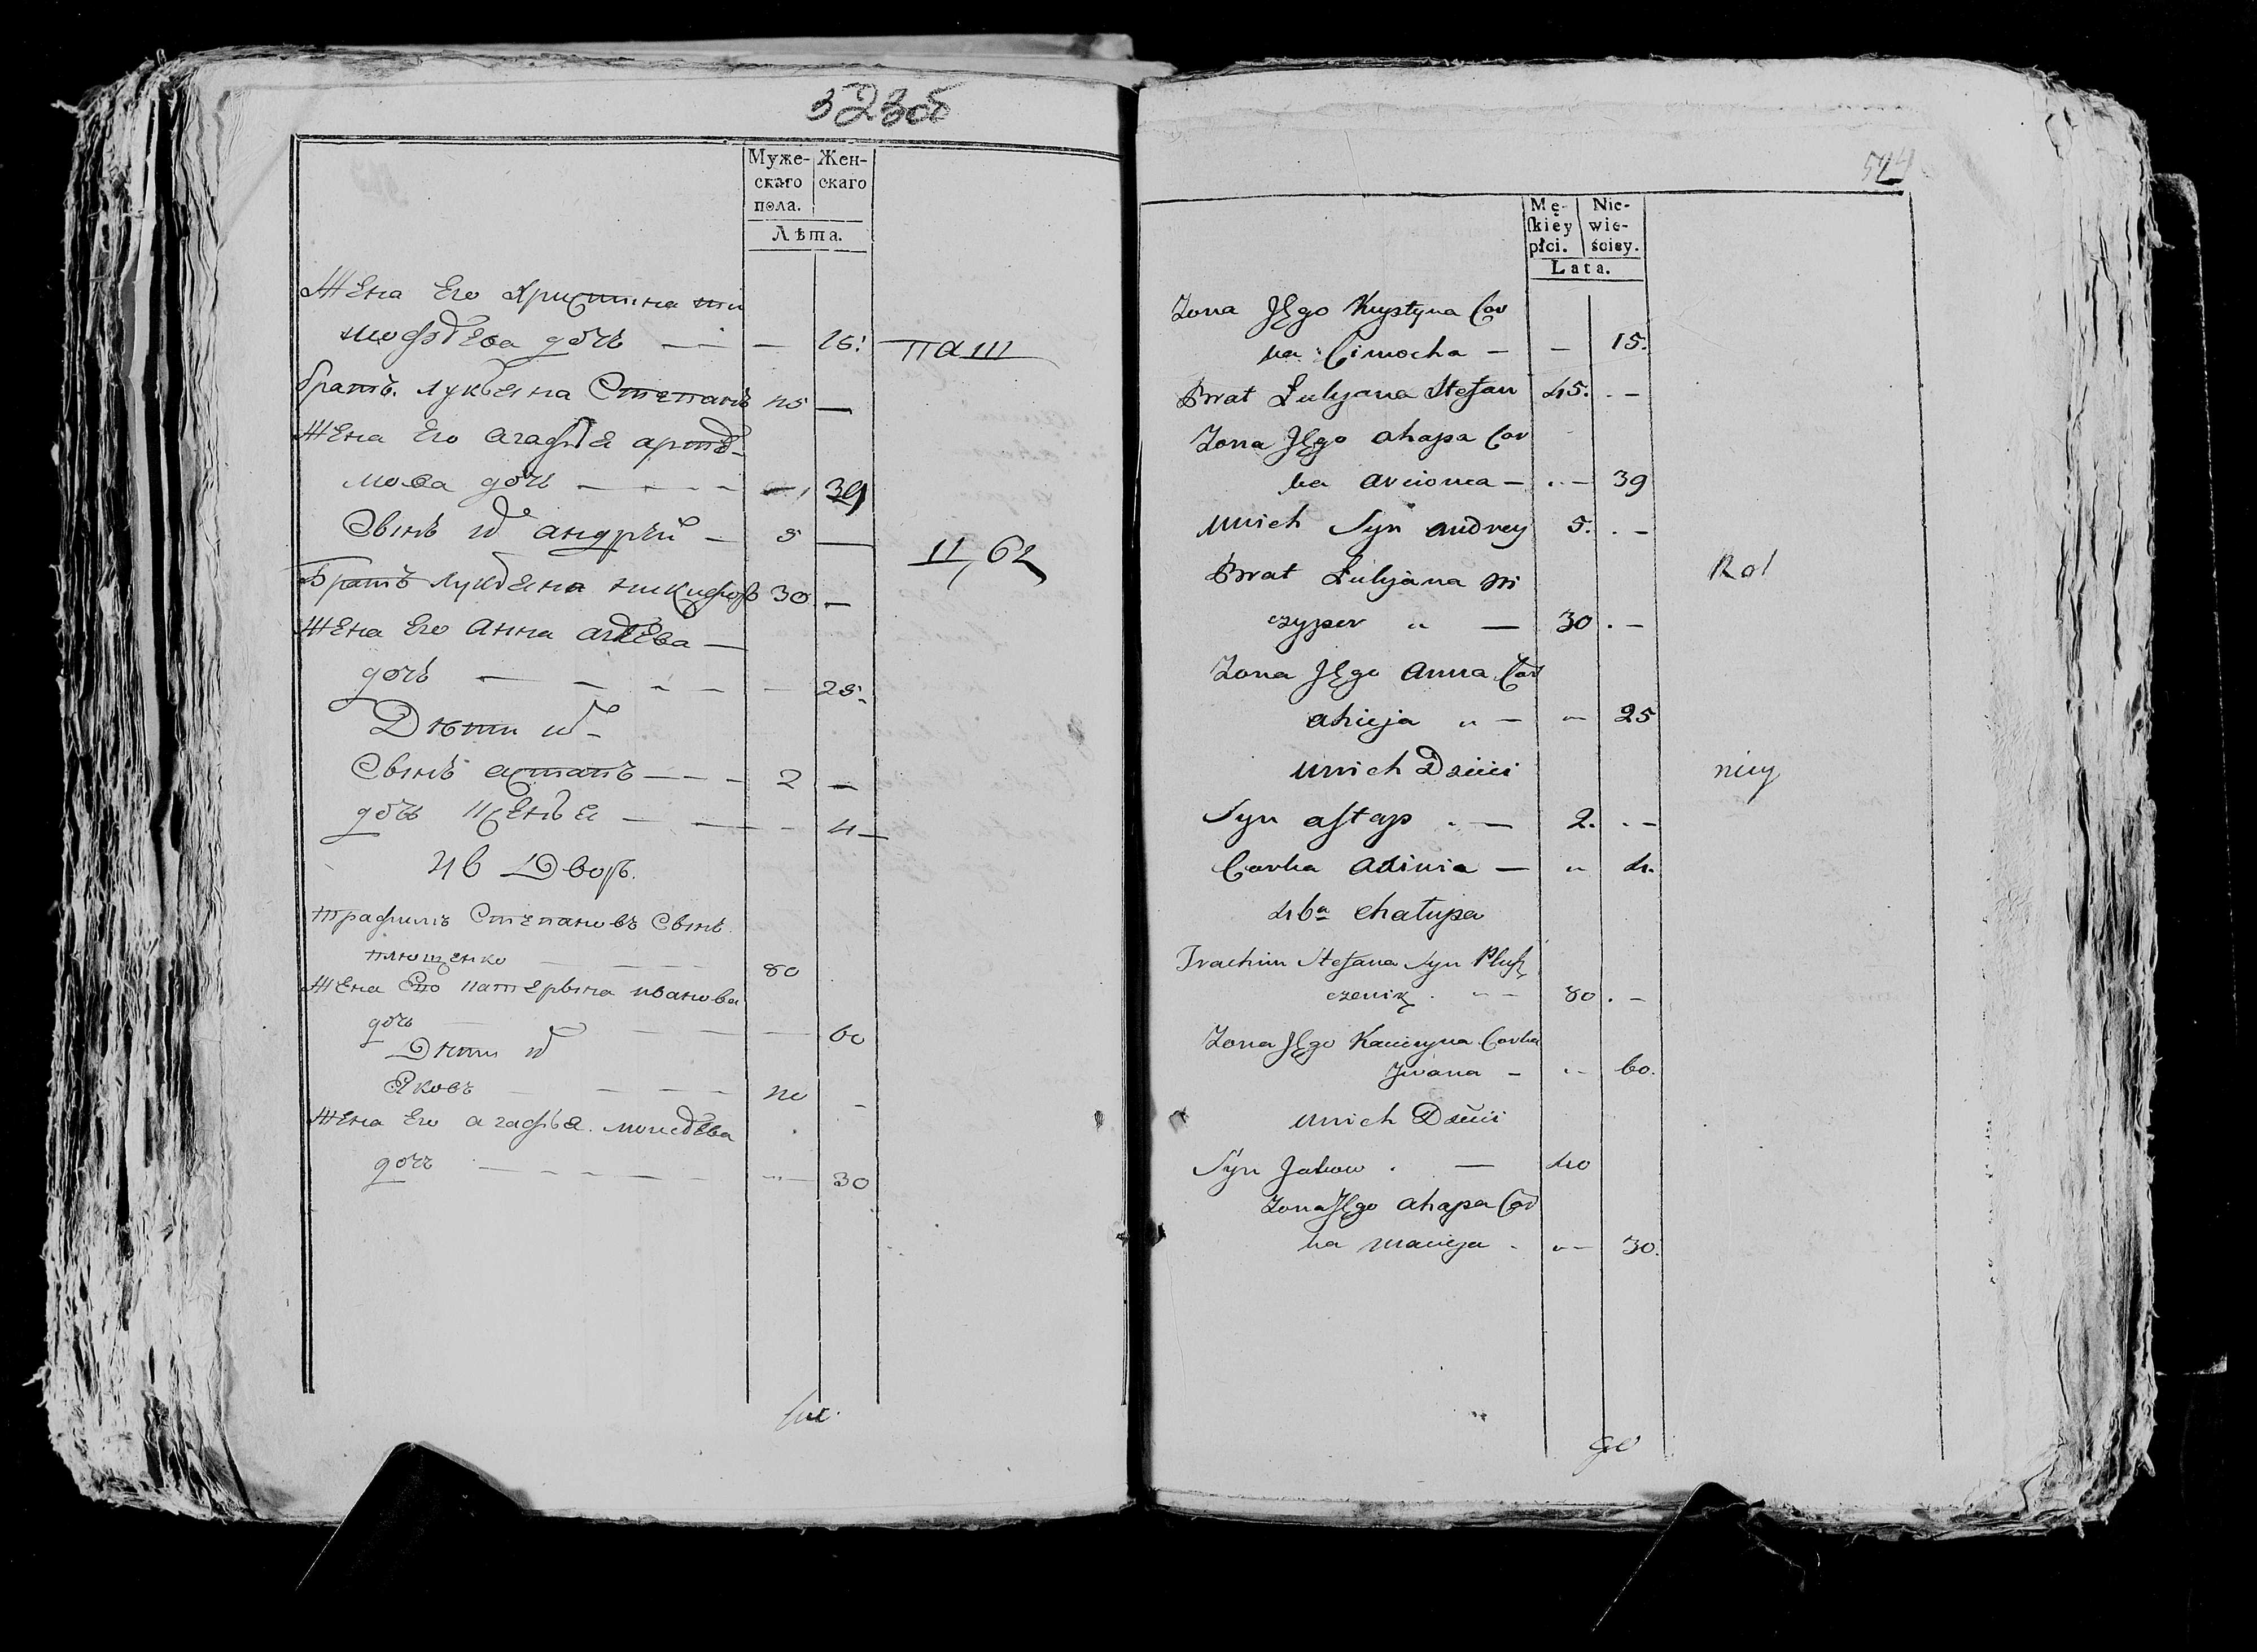 323об
Муже-
скаго
пола.
Жен-
скаго
Лѣта.
Жена Его Христина ти
мофѣева дочь — 15.
паш
братъ Лукьяна Степанъ 45 —
Жена Его Агафія артѣ-
мова дочь — 39
Сынъ их андрѣй — 5 —
ц, 62
Братъ Лукьяна никифоръ 30 —
Жена Его Анна
дочь — 25.
Дѣти их
Сынъ астапъ — 2 —
дочь — 4 —
46 Дворъ.
трафимъ Степановъ Сынъ
плющенко — 80
Жена Его катерына иванова
дочь — 60
Дѣти их
Яковъ — 40 —
Жена Его агафья
дочь — 30
544
Mę-
ſkiey
płci.
Nie-
wie-
ściey.
Lata.
Żona Jego Krystyna Cor
ka Cimocha — — 15.
Brat Łukjana Stefan 45. . —
Żona Jego ahapa Cor
ka arcioma — . . — 39
Unich Syn andrey 5. . —
Brat Łukjana Ni
czyper „ — 30 . —
Rol
Żona Jego anna Cor
ahieja „ — „ — 25
Unich Dzieci
nicy
Syn aſtap . — 2. . —
Corka — „ 4.
46a chałupa
Trachim Stefana Syn Pluſz
czenik . „ — 80 . —
Żona Jego Kacieryna Corka
Jwana — . . — 60.
Unich Dzieci
Syn Jakow . — 40
Żona Jego ahapa Cor
ka Macieja . „ — 30.
go